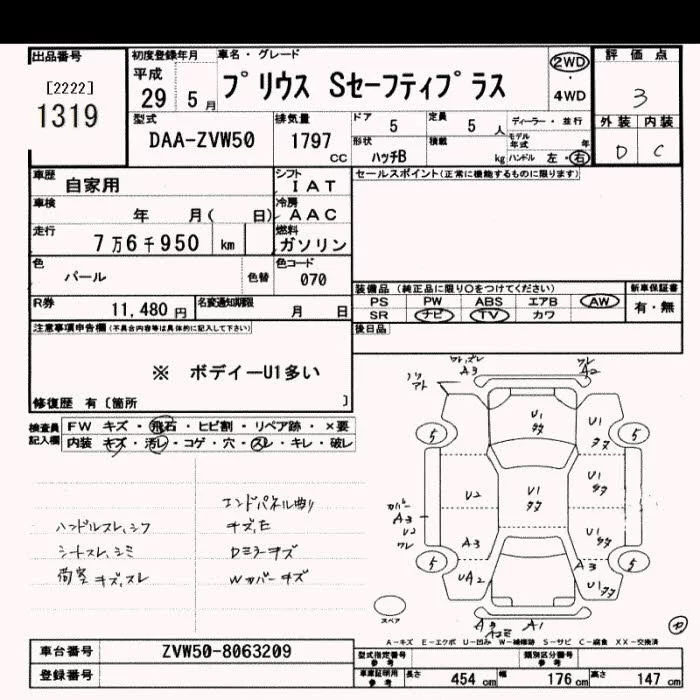 出品番号 初度登録年月 車名・グレード 評価点
[2222]
1319
平成 29 5月
プリウス Sセーフティプラス
2WD
・
4WD
3
型式 排気量 ドア 5 定員 5人 ディーラー・並行 外装 内装
DAA-ZVW50 1797 CC
形状 ハッチB 積載 kg モデル年式 年
ハンドル 左・右
D C
車歴 自家用 シフト IAT セールスポイント(正常に機能するものに限ります)
車検 年 月( 日) 冷房 AAC
走行 7万6千950 km 燃料 ガソリン
色 パール 色替 色コード 070
装備品 (純正品に限り○をつけてください) 新車保証書
PS PW ABS エアB AW 有・無
SR ナビ TV カワ
R券 11,480円 名変通知期限 月 日
後日品
注意事項申告欄(不具合内容等は具体的に記入して下さい)
※ ボデイーU1多い
修復歴 有〔箇所 〕
検査員記入欄 FW キズ・飛石・ヒビ割・リペア跡・×要
内装 キズ・汚レ・コゲ・穴・スレ・キレ・破レ
エンドパネル曲り
ハンドルスレ、シワ キズ、E
シートスレ、シミ Dミラーキズ
荷室キズ、スレ Wカバーキズ
ワレ、ズレ
A3
ワレ
A2
U1
タタ
U1
タタ
5 5
U2
U1
タタ
U1
タタ
カバー
A3
U2
ワレ
A3
U1
タタ
A3
5 5
UA2
U1タタ
スペア
A1
A-キズ E-エクボ U-凹み W-補修跡 S-サビ C-腐食 XX-交換済
車台番号 ZVW50-8063209
登録番号
型式指定番号 参考 類別区分番号 参考
車庫証明用 参考 長さ 454 cm 幅 176 cm 高さ 147 cm